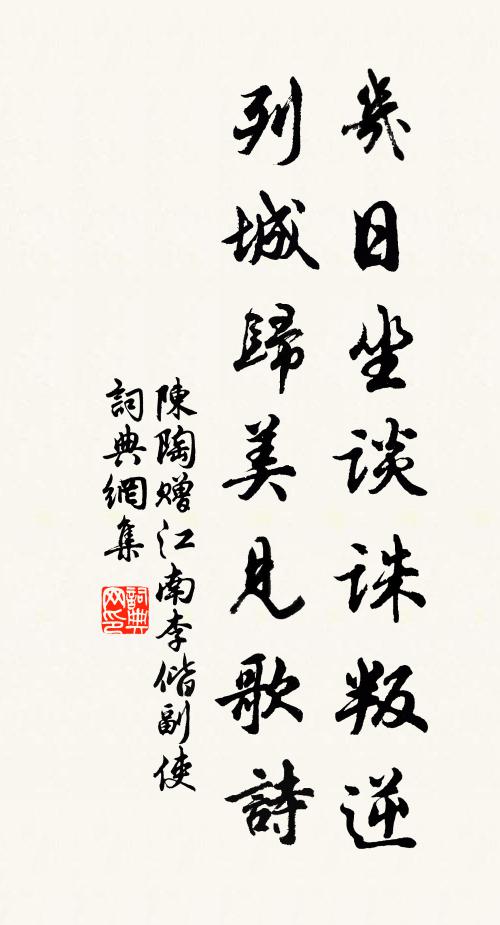 幾日坐談誅叛逆
列城歸美見歌詩
陳陶贈江南李偕副使
詞典網集
詞典
网印